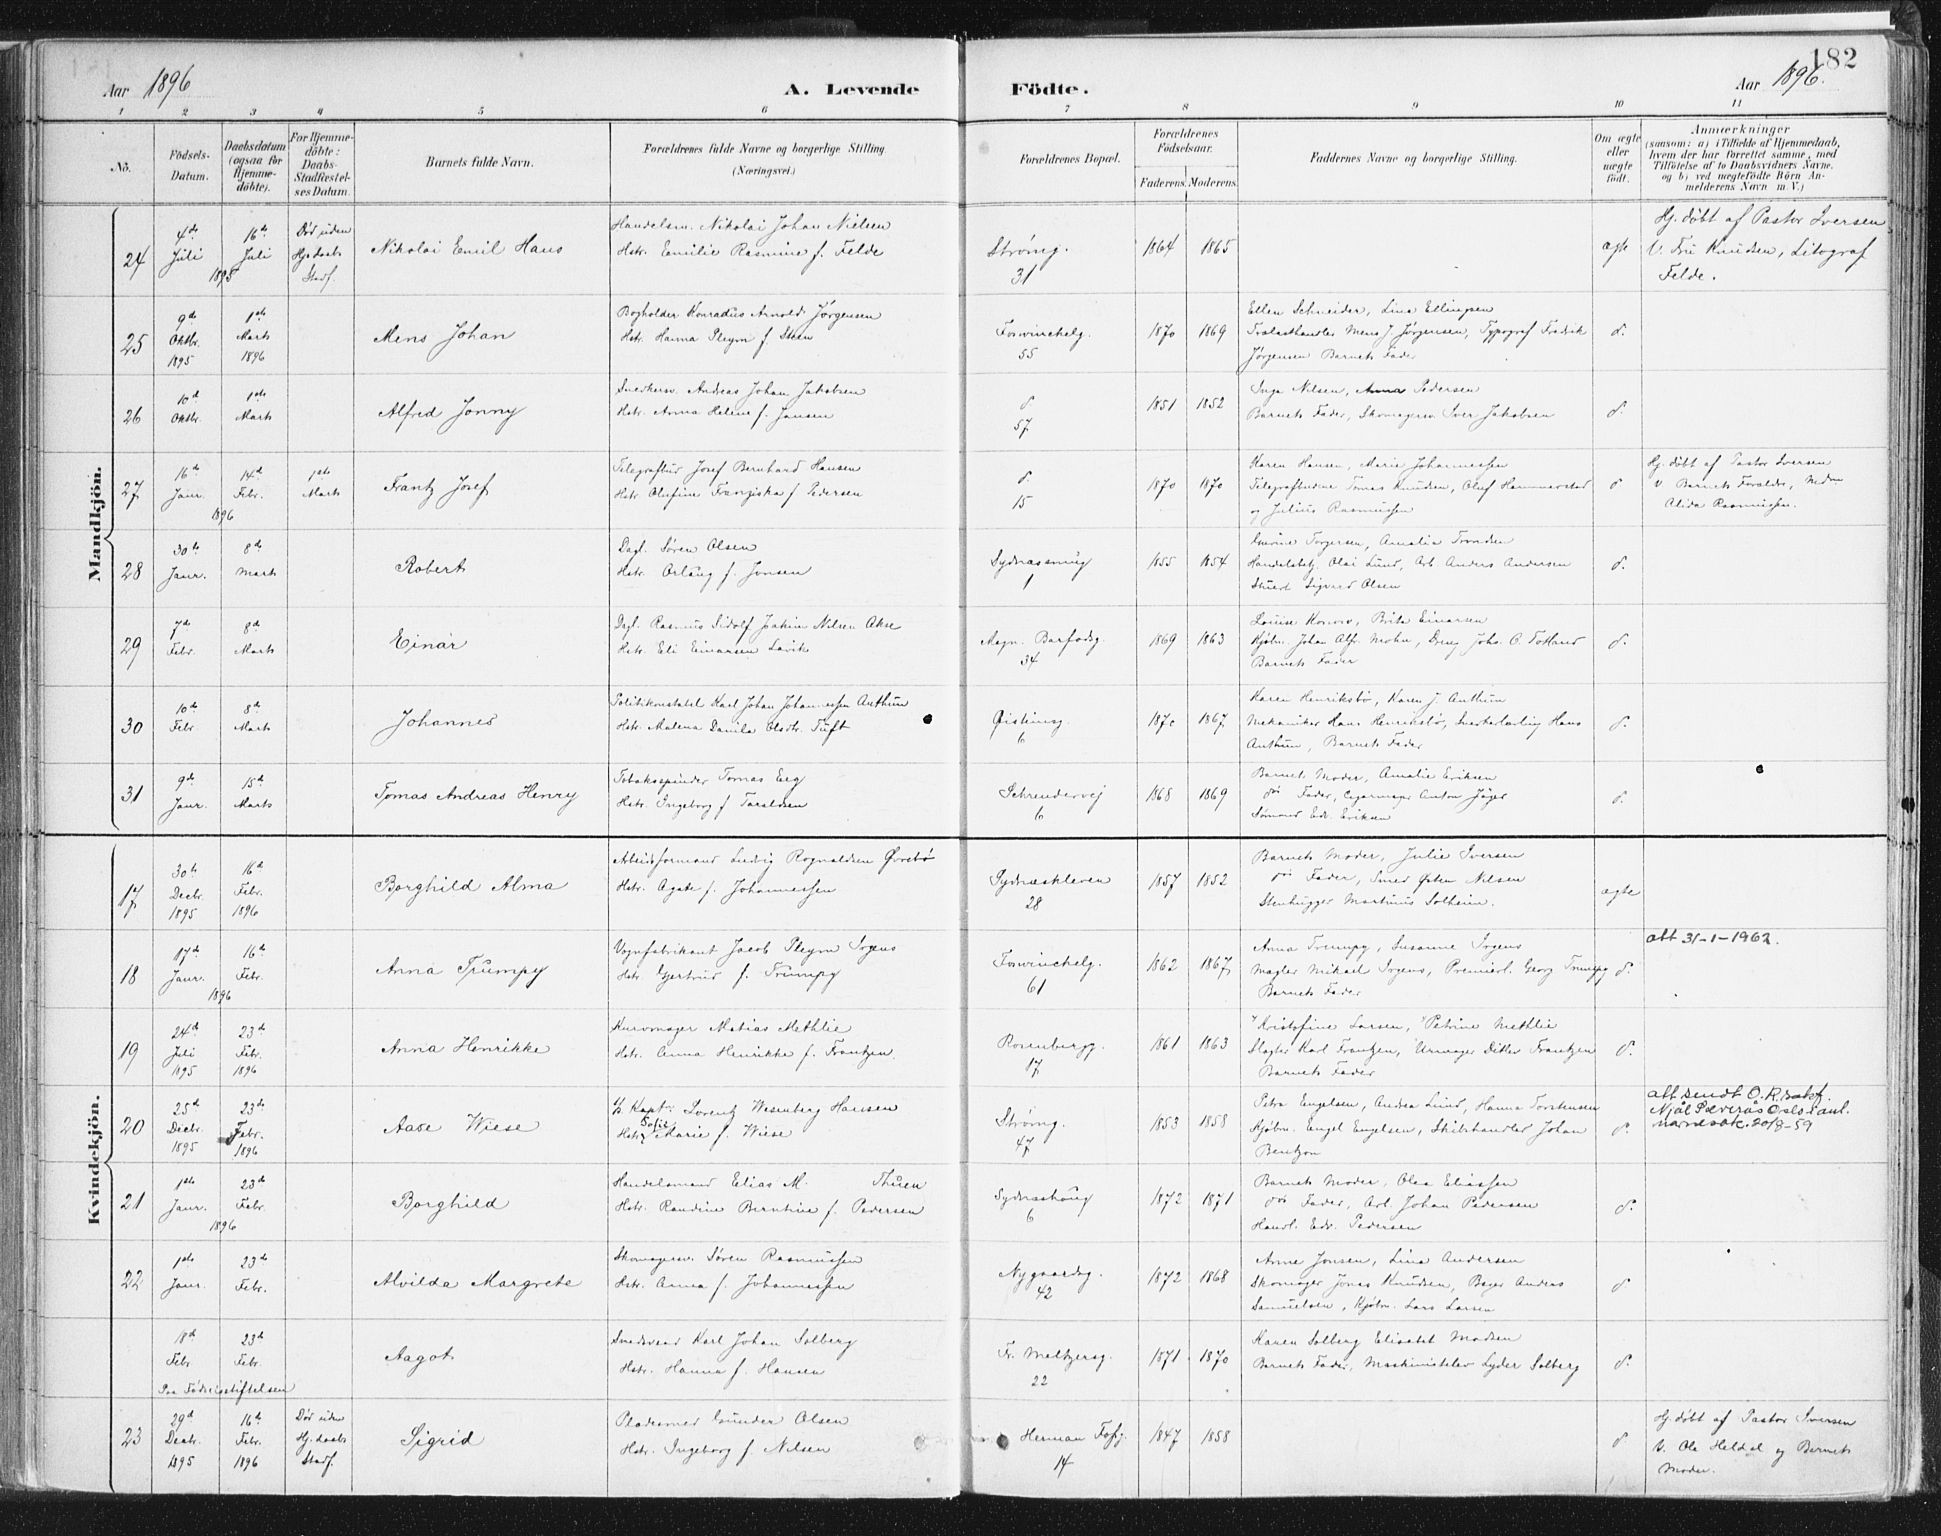 182
Aar 1896
A. Levende
Födte.
Aar 1896.
1 2 3 4 5 6 7 8 9 10 11
No.
Födsels-
Datum.
Daabsdatum
(ogsaa for
Hjemme-
döbte).
For Hjemme-
döbte:
Daabs-
Stadfæstel-
ses Datum.
Barnets fulde Navn.
Forældrenes fulde Navne og borgerlige Stilling
(Næringsvei.)
Forældrenes Bopæl.
Forældrenes
Födselsaar.
Faderens. Moderens.
Faddernes Navne og borgerlige Stilling.
Om ægte
eller
uægte
födt.
Anmærkninger
(saasom: a) i Tilfælde af Hjemmedaab,
hvem der har forrettet samme, med
Tilföielse af to Daabsvidners Navne.
og b) ved uægtefödte Börn An-
melderens Navn m. V.)
Mandkjön.
24
4de
Juli
16de
Juli
1895
Död uden
Hj.daabs
Stadf.
Nikolai Emil Hans
Handelsm. Nikolai Johan Nielsen
Hstr. Emilie Rasmine f. Felde
Strømg.
31
1864 1865
ægte
Hj. döbt af Pastor Iversen
V. Fru Knudsen, Litograf
Felde.
25
9de
Oktbr.
1895
1ste
Marts
1896
Mens Johan
Bogholder Konradus Arnold Jörgensen
Hstr. Hanna Pleym f. Steen
Forvinckelg.
55
1870 1869
Ellen Schneider, Lina Ellingsen
Trælasthandler Mens J. Jörgensen, Typograf Fredrik
Jörgensen Barnets Fader
d.
26
10d
Oktbr.
1ste
Marts
Alfred Jonny
Snedkersv. Andreas Johan Jakobsen
Hstr. Anna Helene f. Jansen
d
57
1851 1852
Inga Nilsen, Anna Pedersen
Barnets Fader, Skomagersv. Iver Jakobsen
d.
27
16de
Janr.
14d
Febr.
1896
1ste
Marts
Frantz Josef
Telegrafbud Josef Bernhard Hansen
Hstr. Olufine Franziska f. Pedersen
d
15
1870 1870
Karen Hansen, Marie Johannessen
Telegrafbudene Tomas Knudsen, Oluf Hammerstad
og Julius Rasmussen
d
Hj. döbt af Pastor Iversen
v Barnets Forældre, Mdm
Alida Rasmussen.
28
30te
Janr.
8de
Marts
Robert
Dagl. Sören Olsen
Hstr. Orlaug f. Jonsen
Sydnæssmug
1
1855 1854
Gurine Torgersen, Amalie Tronsen
Handelsbetj. Olai Lund, Arb. Anders Andersen
Stuert Sigvard Olsen
d.
29
7de
Febr.
8de
Marts
Einar
Dagl. Rasmus Sidolf Joakim Nilsen Akse
Hstr. Eli Einarsen Lavik
Magn. Barfodsg.
34
1869 1863
Louise Konow, Brita Einarsen
Kjöbm. Johan Alfr. Mohn, Dreng Johs. C. Totland
Barnets Fader
d.
30
10de
Febr
8de
Marts
Johannes
Politikonstabel Karl Johan Johannessen Anthun
Hstr. Malena Danila Olsdtr. Tuft
Øistensg.
6
1870 1867
Karen Henriksbö, Karen J. Anthun
Mekaniker Hans Henriksbö, Snekkerlærling Hans
Anthun, Barnets Fader
d.
31
9de
Janr.
15de
Marts
Tomas Andreas Henry
Tobaksspinder Tomas Eeg
Hstr. Ingeborg f Taraldsen
Schrøndervej
6
1868 1869
Barnets Moder, Amalie Eriksen
do Fader, Cigarmager Anton Jäger
Sömand Edv. Eriksen
d.
Kvindekjön.
17
30te
Decbr.
1895
16de
Febr.
1896
Borghild Alma
Arbeidsformand Ludvig Rognaldsen Øvrebö
Hstr. Agate f. Johannessen
Sydnæskleven
28
1857 1852
Barnets Moder, Julie Iversen
do Fader, Smed Østen Nilsen
Stenhugger Martinus Solheim.
ægte
18
17de
Janr.
16de
Febr.
1896
Anna Trumpy
Vognfabrikant Jacob Pleym Irgens
Hstr Gjertrud f. Trumpy
Forvinckelg.
61
1862 1867
Anna Trumpy, Susanne Irgens
Mægler Mikael Irgens, Premierl. Georg Trumpy
Barnets Fader
d.
att 31-1-1962.
19
24d
Juli
1895
23d
Febr.
1896
Anna Henrikke
Kurvmager Matias Methlie
Hstr. Anna Henrikke f. Frantzen
Rosenbergg.
17
1861 1863
Kristofine Larsen, Petrine Methlie
Slagter Karl Frantzen, Urmager Ditlev Frantzen
Barnets Fader
d.
20
25d
Decbr.
1895
23de
Febr.
1896
Aase Wiese
Kapt. Lorentz Wesenberg Hansen
Hstr. Sofie Marie f. Wiese
Strømg.
47
1853 1858
Petra Engelsen, Andrea Lund, Hanna Torstensen
Kjöbm. Engel Engelsen, Skibshandler Johan
Bentzon
d.
att sendt O.R.sakf.
Njål Sæverås Oslo i anl.
navnesak. 20/8-59
21
1ste
Janr.
23de
Febr.
1896
Borghild
Handelsmand Elias M. Thuen
Hstr. Randine Berntine f. Pedersen
Sydnæshaug
6
1872 1871
Barnets Moder, Olea Eliassen
do Fader, Arb. Johan Pedersen
Handl. Edv. Pedersen
d.
22
1ste
Janr.
23de
Febr.
Alvilda Margrete
Skomagersv. Sören Rasmussen
Hstr. Anna f. Johannessen
Nygaardsg.
42
1872 1868
Anne Jonsen, Lina Andersen
Skomager Jonas Knudsen, Bager Andreas
Samuelsen, Kjöbm. Lars Larsen
d
18d
Febr.
23de
Febr.
Paa Födselsstiftelsen
Aagot
Smedsvend Karl Johan Solberg
Hstr. Hanna f. Hansen
Fr. Meltzersg.
22
1871 1870
Karen Solberg Elisabet Madsen
Barnets Fader, Maskinistelev Lyder Solberg
d.
23
29d
Decbr.
1895
16de
Febr.
1896
Död uden
Hj.daabs
Stadf.
Sigrid
Pladesmed Gunder Olsen
Hstr. Ingeborg f. Nilsen
Herman Fossg.
14
1847 1858
d
Hj. döbt af Pastor Iversen
V. Ole Heldal og Barnets
Moder.